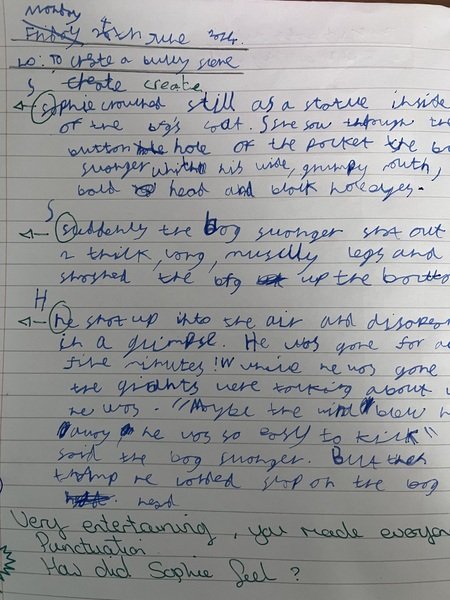 Monday
Friday June 2024
LO: To crete a bully scene
S create create
Sophie crowned still as a statue inside
of the bfg's coat. She sow through the
button hole of the pocket the bo
suonger whith his wide, grumpy mouth,
bald head and black
S
Suddenly the bog suonger shot out
2 thick, long, muselly legs and
shoshed the bfg up the botto
H
he shot up into the air and disopea
in a glimpse. He was gone for a
five minutes! W while he was gone
the giants were talking about
he was. "Maybe the wind blew h
away he was so easy to kick"
said the bog suonger. But then
he slop on the bog
head
Very entertaining, you made everyon
Punctuation
How did Sophie feel?